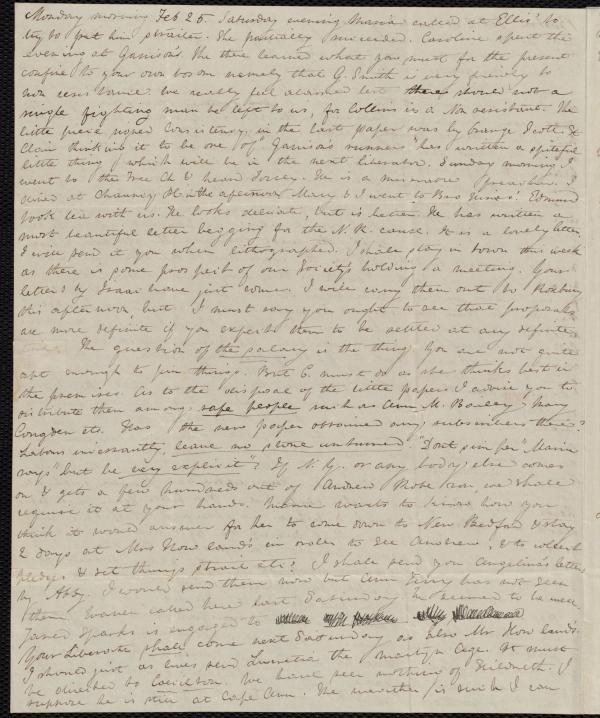 Monday morning Feb 25. Saturday evening Maria called at Ellis' to
try to put him straiter. She partially succeeded. Caroline spent the
evening at Garrison's. She there learned what you must for the present
confine to your own bosom namely that G. Smith is very nearly to
non resistance. We really feel alarmed lest there should not a
single fighting man be left to us, for Collins is a Non resistant. The
little piece signed Consistency, in the last paper was by Orange Scott. St
Clair thinking it to be one of "Garrison's runners" has written a spiteful
little thing which will be in the next liberator. Sunday morning I
went to the Free Ch & heard He is a preacher. I
dined at Chauncy Pl in the afternoon Mary & I went to Edmund
took tea with us. He looks delicate, but is better. He has written a
most beautiful letter begging for the N. R. cause. It is a lovely letter
I will send it you when lithographed. I shall stay in town this week
as there is some prospect of our Society's holding a meeting. Your
letters by Isaac have just come. I will carry them out to Roxbury
this afternoon, but I must say you ought to see that proposals
are more definite if you expect them to be settled at any definite
The question of the salary is the thing. You are not quite
apt enough to pin things. But C. must do as she thinks best in
the premises. As to the disposal of the little papers I advise you to
distribute them among safe people such as Ann M. Bailey, Mary
Congdon etc. Has the new paper obtained any subscribers there?
Labour incessantly, leave no stone unturned. "Dont simper" Maria
says "but be very explicit"? If N. G. or any body else comes
on & gets a few hundreds out of Andrew Robeson we shall
require it at your hands. Maria wants to know how you
think it would answer for her to come down to New Bedford & stay
2 days at Mrs Howland's in order to see Andrew, & to collect
pledges & set things strait etc? I shall send you Angelina's letters
by Abby. I would send them now but Ann Terry has not seen
them. called here last Saturday. He seemed to be well.
Jared Sparks is engaged to
Your Liberator shall come next Saturday as also Mr Howland's.
I should just as lieves send Lucretia the martyr Age. It must
be directed to We have seen nothing of Hildreth. I
suppose he is still at Cape Ann. The weather is such I can